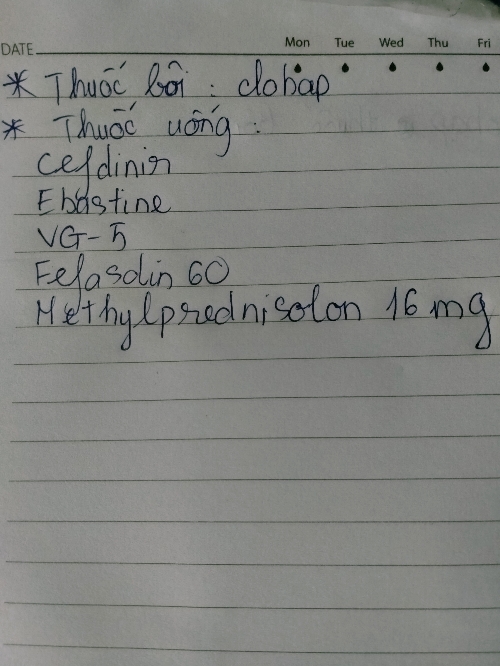 DATE Mon Tue Wed Thu Fri
* Thuốc bôi : clobap
* Thuốc uống :
Cefdinir
Ebastine
VG-5
Fefasdin 60
Methylprednisolon 16 mg